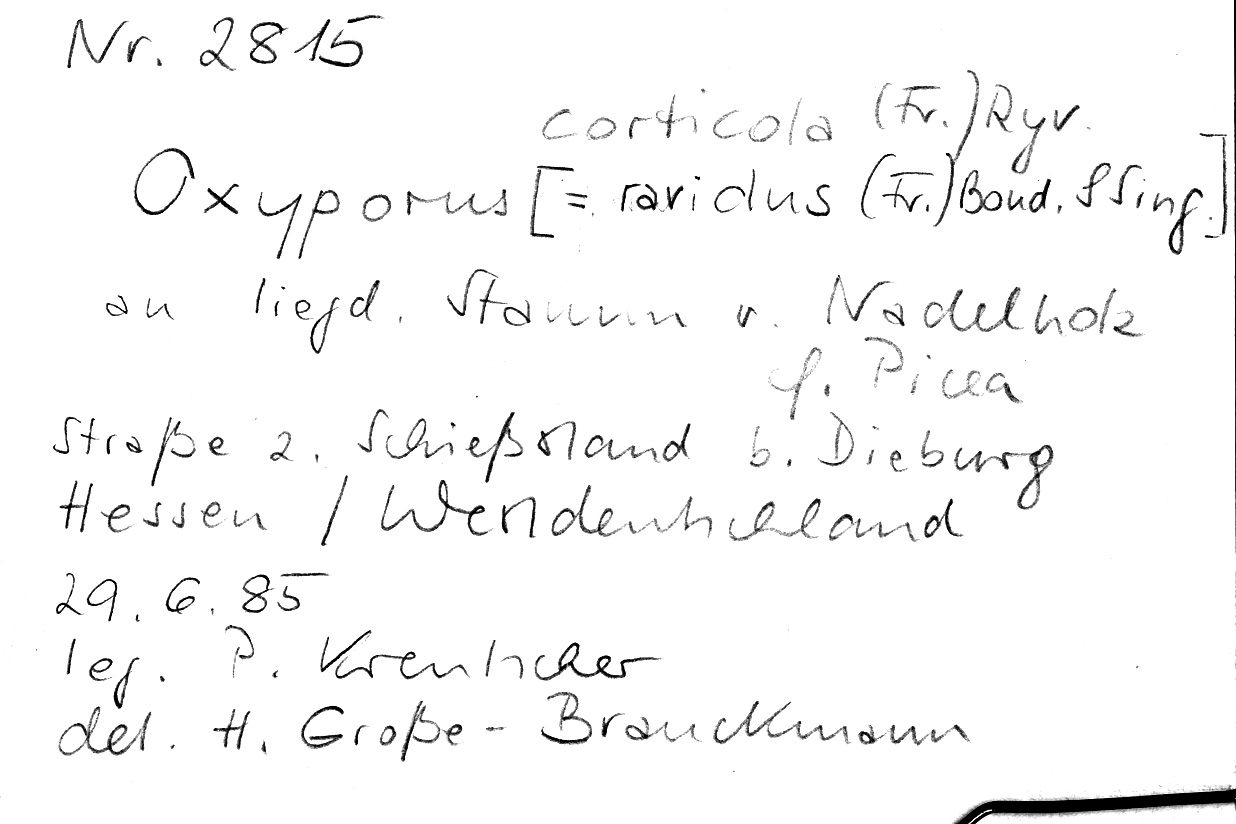 Nr. 2815
corticola (Fr.) Ryv.
Oxyporus [= ravidus (Fr.) Bond. & Sing.]
an liegd. Stamm v. Nadelholz
f. Picea
Straße z. Schießstand b. Dieburg
Hessen / Westdeutschland
29. 6. 85
leg. P.
det. H. Große-Brauckmann